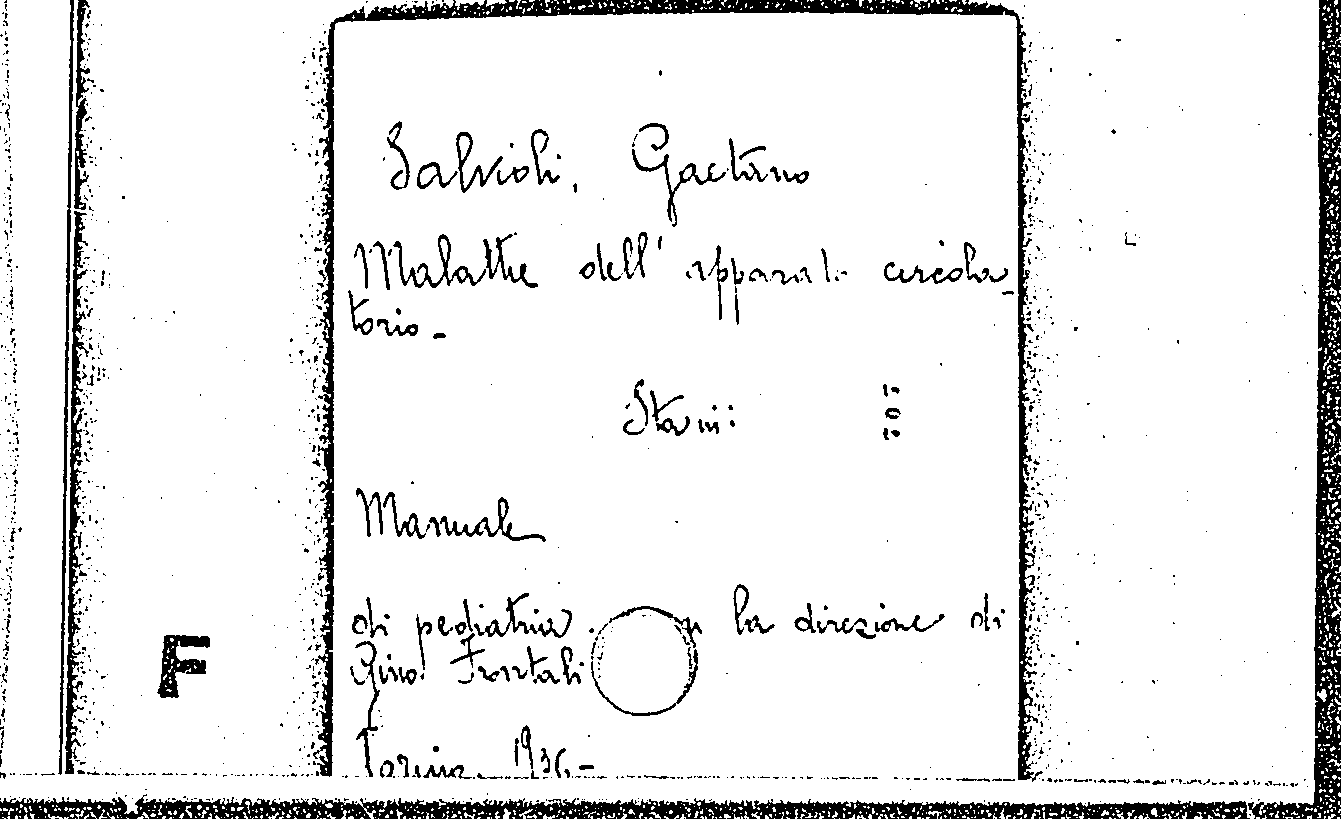 Salvioli, Gaetano
Malattie dell' apparato circola-
torio.-
Sta in:
Manuale
di pediatria. la direzione di
Gino Frontali
Torino, 1936-
F